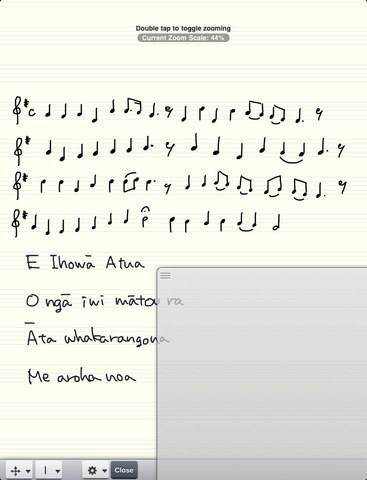 Double tap to toggle zooming
Current Zoom Scale: 44%
E Ihowā Atua
O ngā iwi mātou ra
Āta whakarangona
Me aroha noa
Close